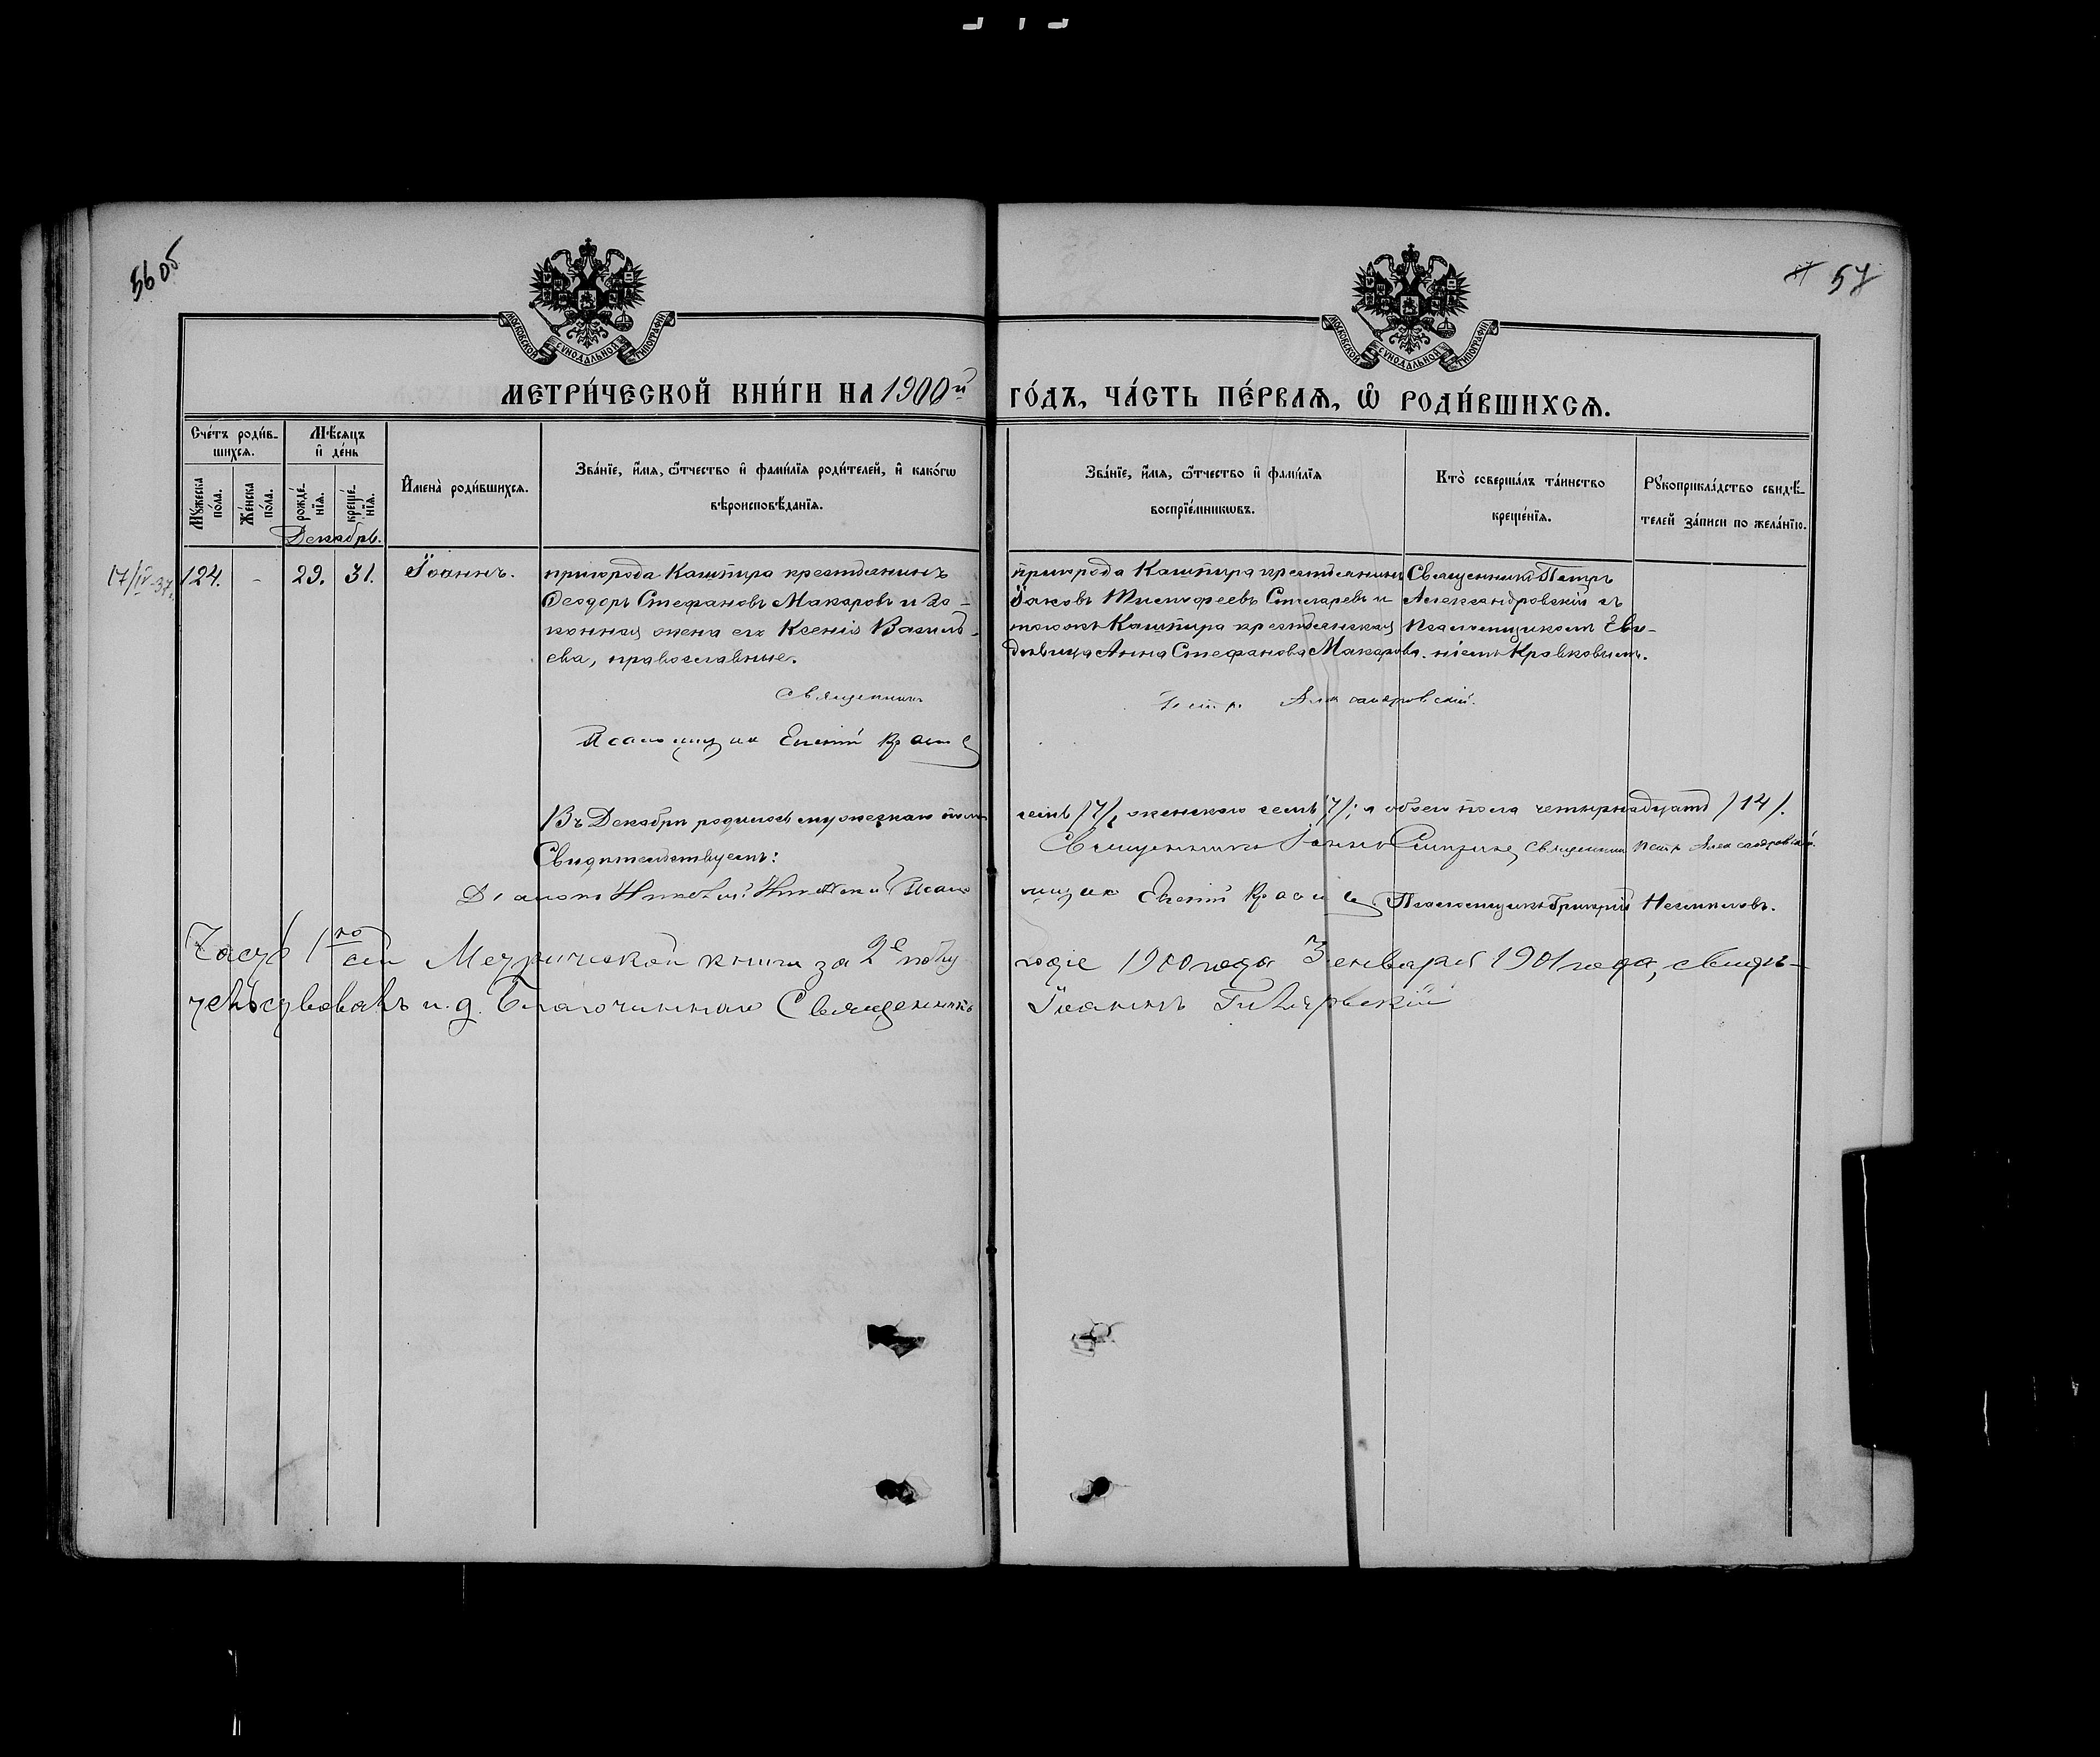 56 об
57
МОСКОВСКОЙ СѴНОДАЛЬНОЙ ТИПОГРАФІИ
МОСКОВСКОЙ СѴНОДАЛЬНОЙ ТИПОГРАФІИ
МЕТРИ́ЧЕСКОЙ КНИ́ГИ НА 1900й ГО́ДЪ, ЧА́СТЬ ПЕ́РВАѦ, Ѽ РОДИ́ВШИХСѦ.
Сче́тъ роди́в-
шихсѧ.
Мꙋ́жеска по́ла.
Же́нска по́ла.
Мѣ́сѧцъ
и҆ де́нь
рожде́-
нїѧ.
креще́-
нїѧ.
Декабрь.
И҆мена̀ роди́вшихсѧ.
Зва́нїе, и҆́мѧ, ѻ҆́тчество и҆ фамилїѧ роди́телей, и҆ како́гѡ
вѣроисповѣ́данїѧ.
Зва́нїе, и҆́мѧ, ѻ҆́тчество и҆ фами́лїѧ
воспрїе́мникѡвъ.
Кто̀ соверша́лъ та́инство
креще́нїѧ.
Рꙋкоприкла́дство свидѣ́-
телей за́писи по жела́нїю.
17/IV-37г.
124.
-
29.
31.
Іоаннъ.
пригорода Кашпира крестьянинъ
Ѳеодоръ Стефановъ Макаровъ и за-
конная жена его Ксенія Василь-
ева, православные.
пригорода Кашпира крестьянинъ
Іаковъ Тимофеевъ Столяревъ и
тогожъ Кашпира крестьянская
дѣвица Анна Стефанова Макарова.
Священникъ Петръ
Александровскій съ
Псаломщикомъ Евг-
ніемъ Кравковымъ.
Священникъ Петръ Александровскій.
Псаломщикъ Евгеній
Въ Декабрѣ родилось мужескаго пола семь /7/, женскаго семь /7/; а обоего пола четырнадцать /14/.
Свидѣтельствуемъ: Священникъ Іоаннъ Священникъ Петръ Александровскій.
Діаконъ Николай Псаломщикъ Евгеній Псаломщикъ Григорій
Часть 1ю сей Метрической книги за 2е полугодіе 1900 года 3 января 1901 года, свидѣ-
тельствовалъ и. д. Благочиннаго Священникъ Іоаннъ